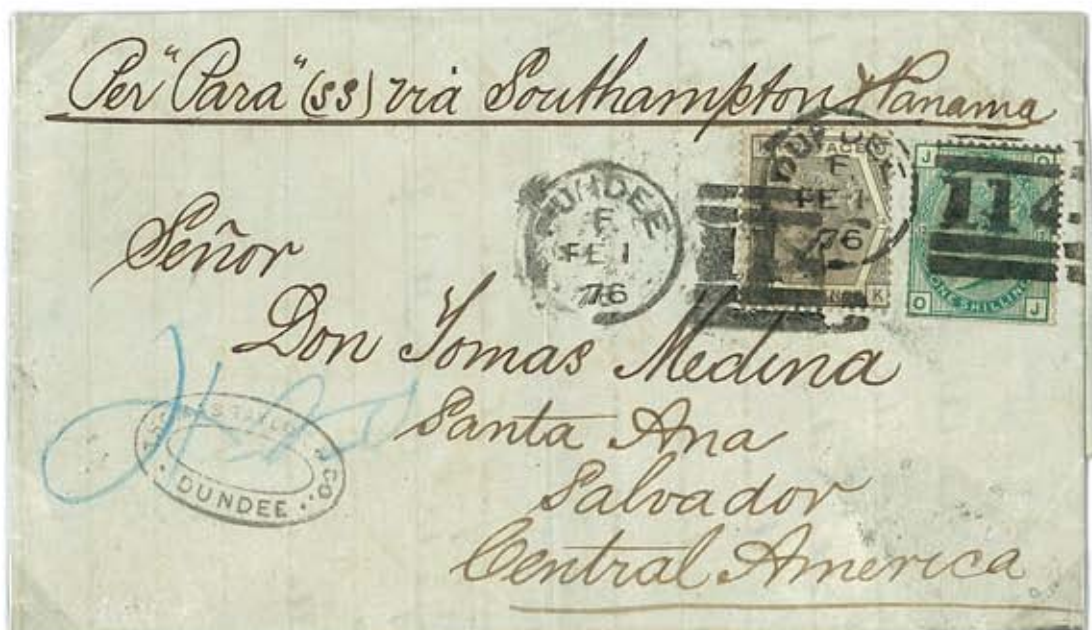 Per "Para" (SS) via Southampton & Panama
DUNDEE
F
FE 1
76
DUNDEE
F
FE 1
76
114
K
N K
J O
114
ONE SHILLING
O J
Señor
Don Tomas Medina
Santa Ana
Salvador
Central America
& CO
DUNDEE